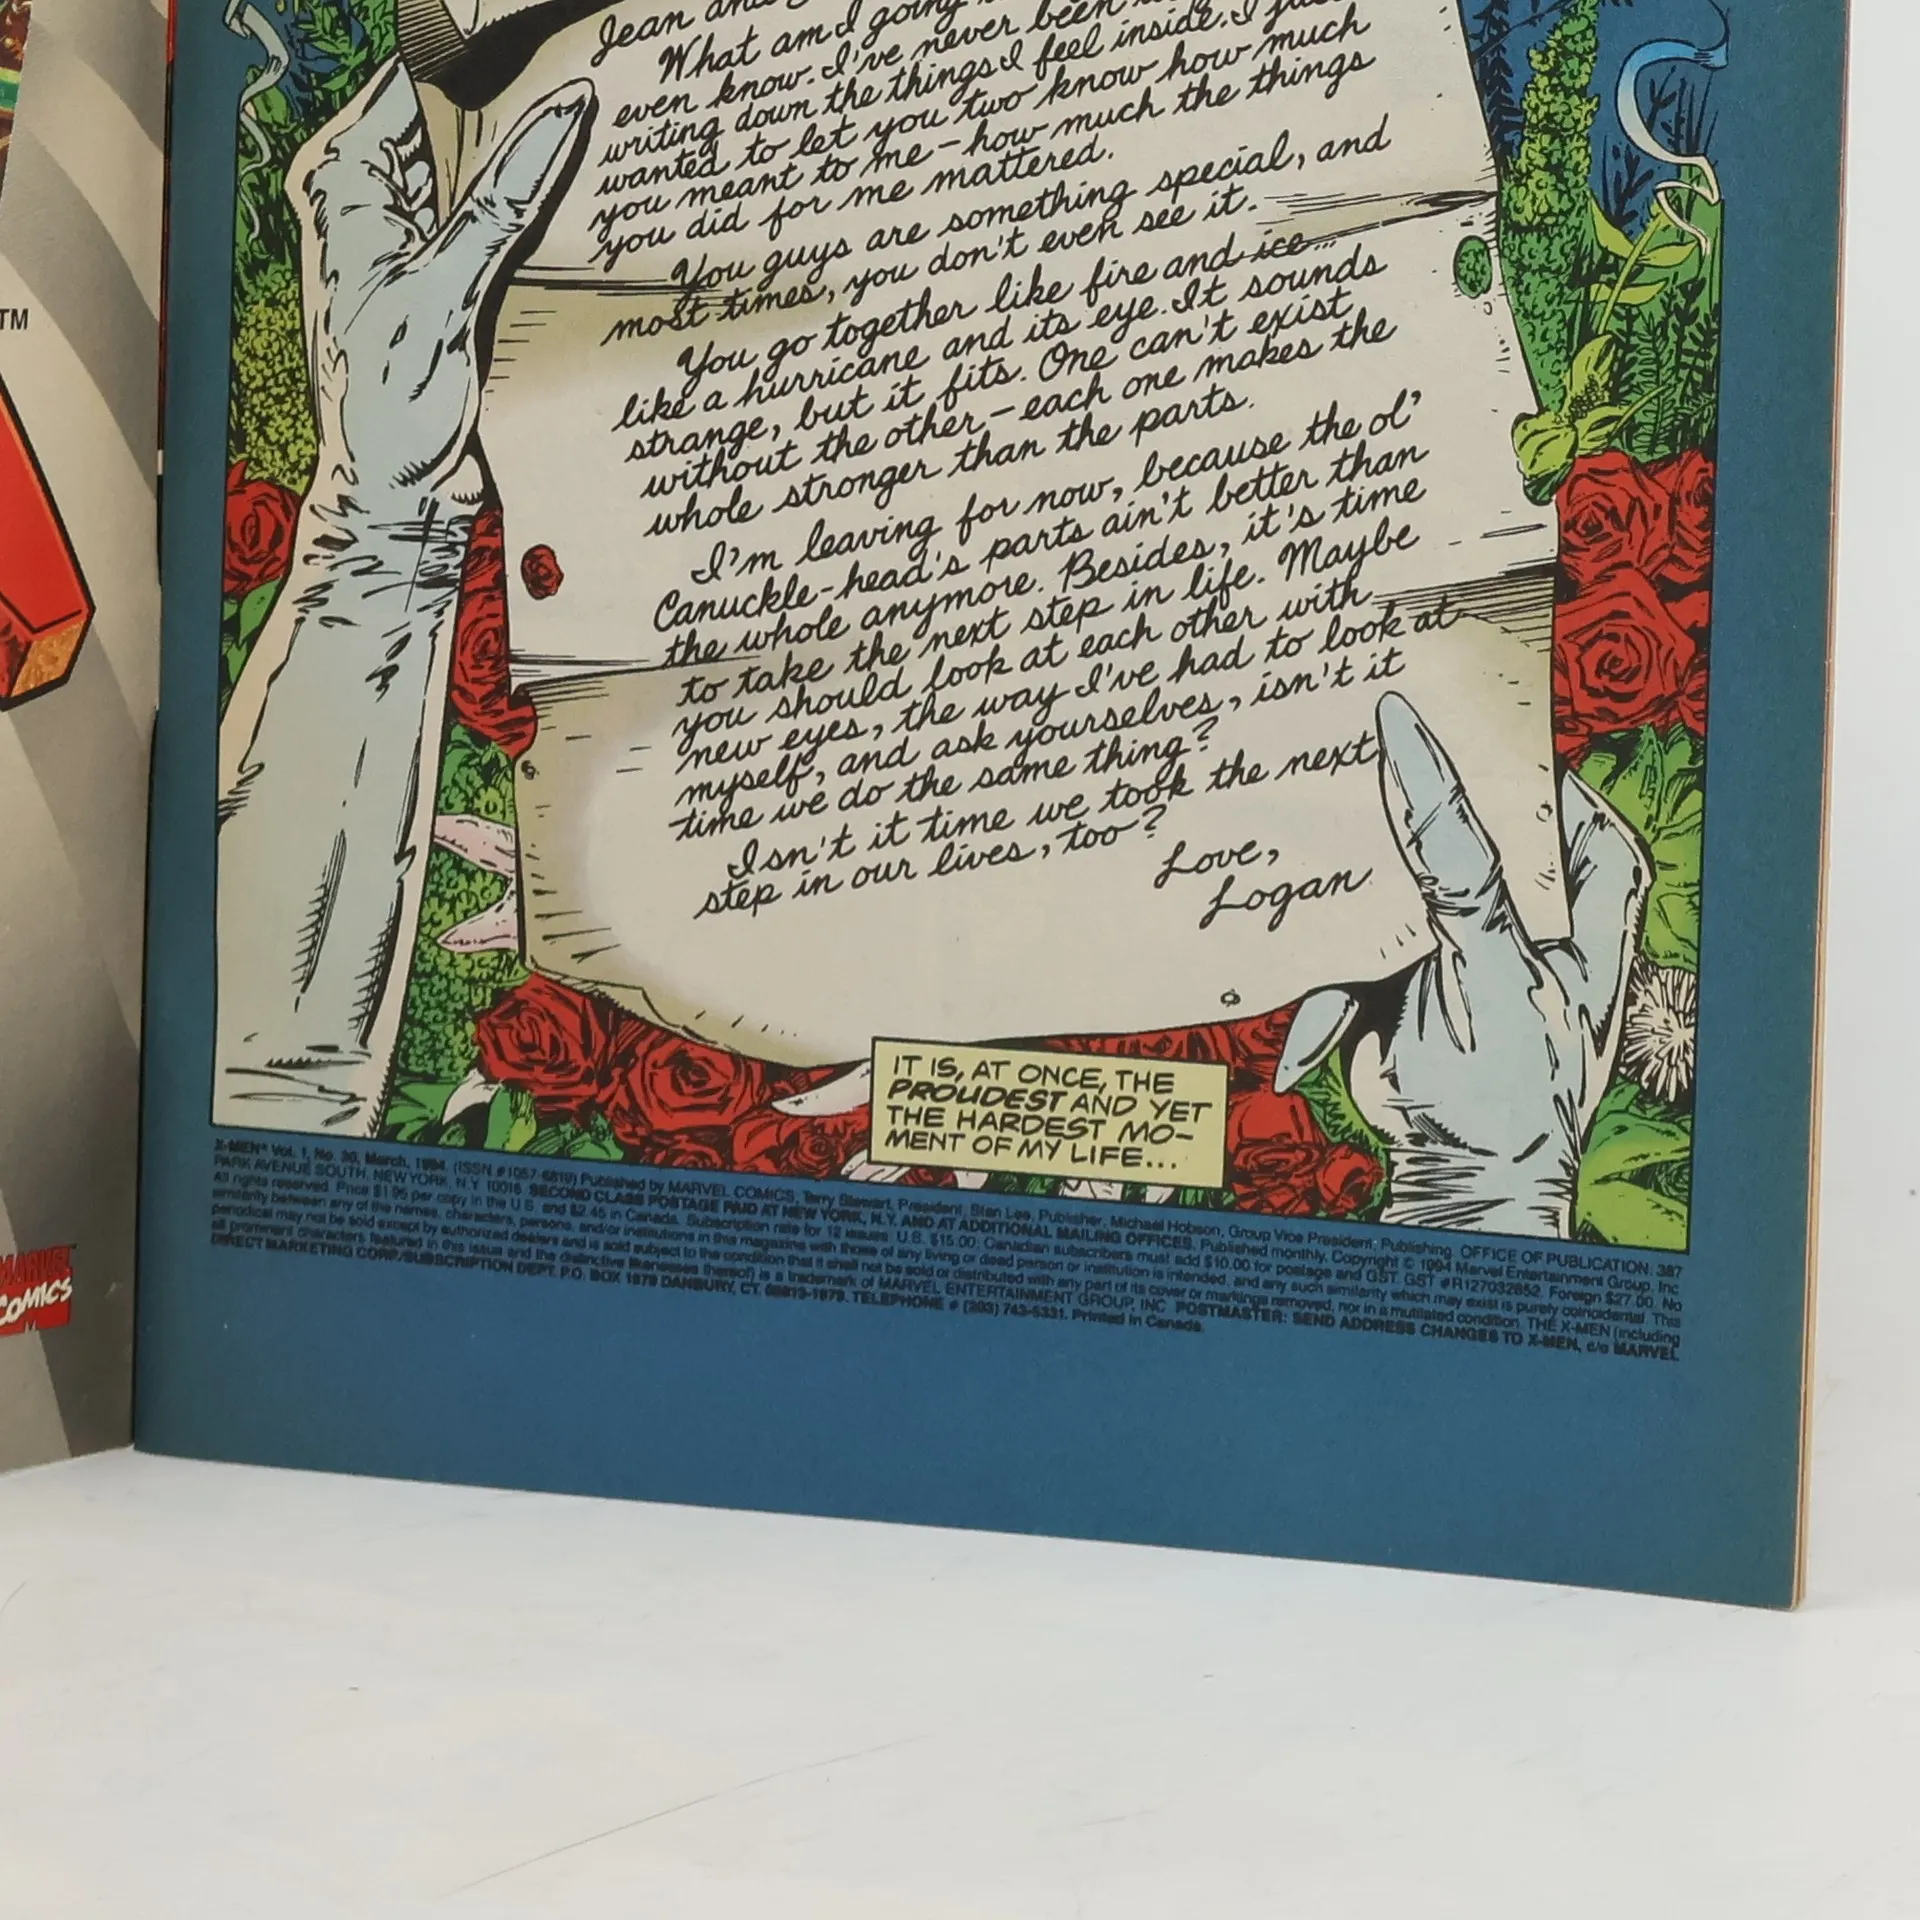 Jean and
What am I going
even know. I've never been
writing down the things I feel inside. I just
wanted to let you two know how much
you meant to me – how much the things
you did for me mattered.
You guys are something special, and
most times, you don't even see it.
You go together like fire and ice...
like a hurricane and its eye. It sounds
strange, but it fits. One can't exist
without the other – each one makes the
whole stronger than the parts.
I'm leaving for now, because the ol'
Canuckle-head's parts ain't better than
the whole anymore. Besides, it's time
to take the next step in life. Maybe
you should look at each other with
new eyes, the way I've had to look at
myself, and ask yourselves, isn't it
time we do the same thing?
Isn't it time we took the next
step in our lives, too?
Love,
Logan
IT IS, AT ONCE, THE
PROUDEST AND YET
THE HARDEST MO-
MENT OF MY LIFE...
X-MEN® Vol. 1, No. 30, March, 1994. (ISSN #1057-6819) Published by MARVEL COMICS, Terry Stewart, President. Stan Lee, Publisher. Michael Hobson, Group Vice President, Publishing. OFFICE OF PUBLICATION: 387
PARK AVENUE SOUTH, NEW YORK, N.Y. 10016. SECOND CLASS POSTAGE PAID AT NEW YORK, N.Y. AND AT ADDITIONAL MAILING OFFICES. Published monthly. Copyright © 1994 Marvel Entertainment Group, Inc.
All rights reserved. Price $1.95 per copy in the U.S. and $2.45 in Canada. Subscription rate for 12 issues: U.S. $15.00; Canadian subscribers must add $10.00 for postage and GST. GST #R127032852. Foreign $27.00. No
similarity between any of the names, characters, persons, and/or institutions in this magazine with those of any living or dead person or institution is intended, and any such similarity which may exist is purely coincidental. This
periodical may not be sold except by authorized dealers and is sold subject to the condition that it shall not be sold or distributed with any part of its cover or markings removed, nor in a mutilated condition. THE X-MEN (including
all prominent characters featured in this issue and the distinctive likenesses thereof) is a trademark of MARVEL ENTERTAINMENT GROUP, INC. POSTMASTER: SEND ADDRESS CHANGES TO X-MEN, c/o MARVEL
DIRECT MARKETING CORP./SUBSCRIPTION DEPT. P.O. BOX 1979 DANBURY, CT. 06813-1979. TELEPHONE # (203) 743-5331. Printed in Canada.
TM
MARVEL
COMICS